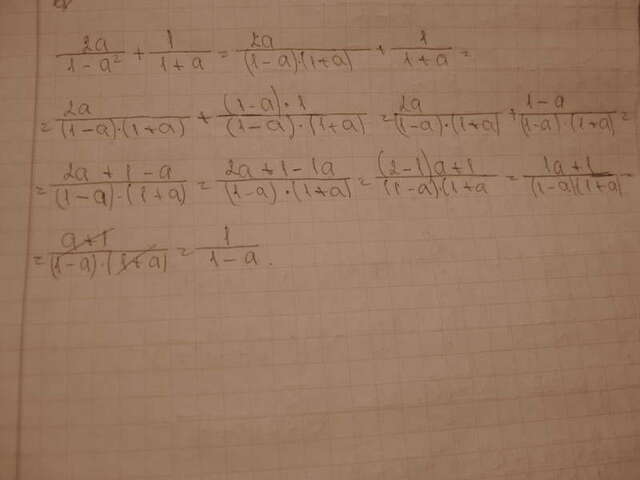 2a/(1-a²) + 1/(1+a) = 2a/((1-a)·(1+a)) + 1/(1+a) =
= 2a/((1-a)·(1+a)) + ((1-a)·1)/((1-a)·(1+a)) = 2a/((1-a)·(1+a)) + (1-a)/((1-a)·(1+a)) =
= (2a+1-a)/((1-a)·(1+a)) = (2a+1-1a)/((1-a)·(1+a)) = ((2-1)a+1)/((1-a)·(1+a) = (1a+1)/((1-a)(1+a)) =
= (a+1)/((1-a)·(1+a)) = 1/(1-a).